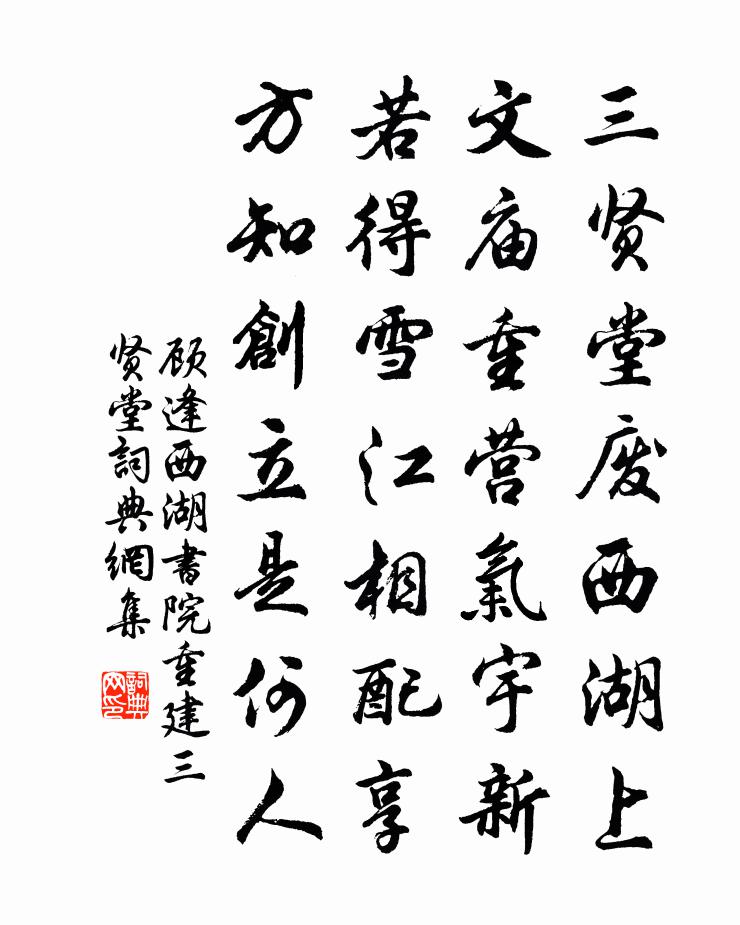 三贤堂废西湖上
文庙重营氣宇新
若得雪江相配享
方知創立是何人
顾逢西湖書院重建三
贤堂詞典網集
詞典
网印